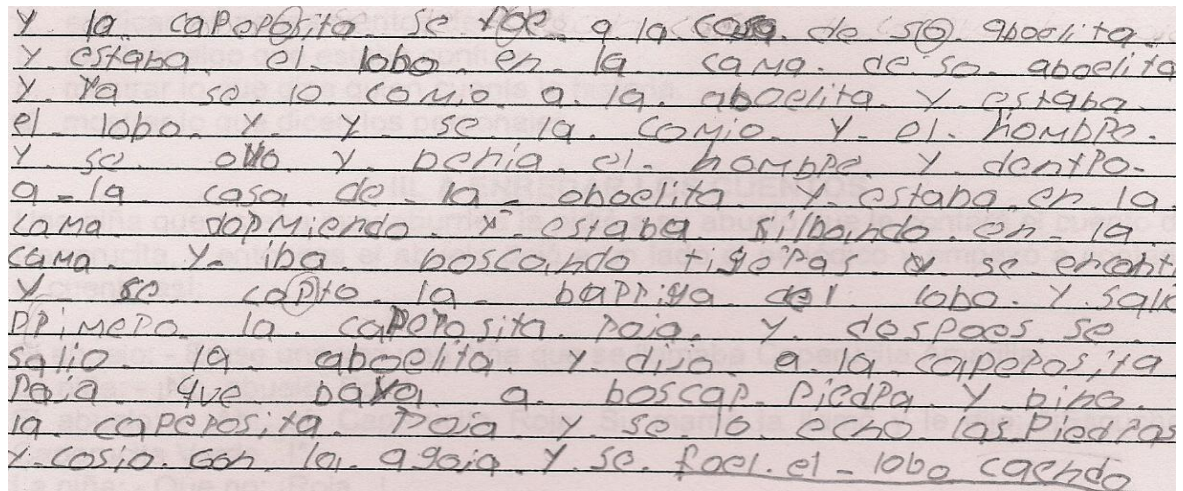 Y la capeposita se foe a la casa. de so aboelita.
Y estaba. el lobo en la cama. de so. aboelita
Y Ya se. lo. comio. a. la. aboelita. Y estaba.
el lobo. Y. Y se la. comio. Y. el. hombpe.
Y se. Y. benia. el. hombpe. Y dentpo.
a - la casa. de - la - aboelita. Y. estaba. en. la.
cama dopmiendo Y estaba silbando. en la
cama. Y. iba. boscando tigepas Y. se. encont
Y se capto. la bappiga del lobo. Y. salio
ppimepo. la. capeposita poja. Y. despoes se.
salio. la aboelita. Y. diso. a. la. capeposita
poja que baya a. boscap. piedpa. Y bino.
la. capeposita. poja Y. se. lo echo. las. piedpas
Y. cosio. con la. agoja. Y. se. foel. el - lobo caendo